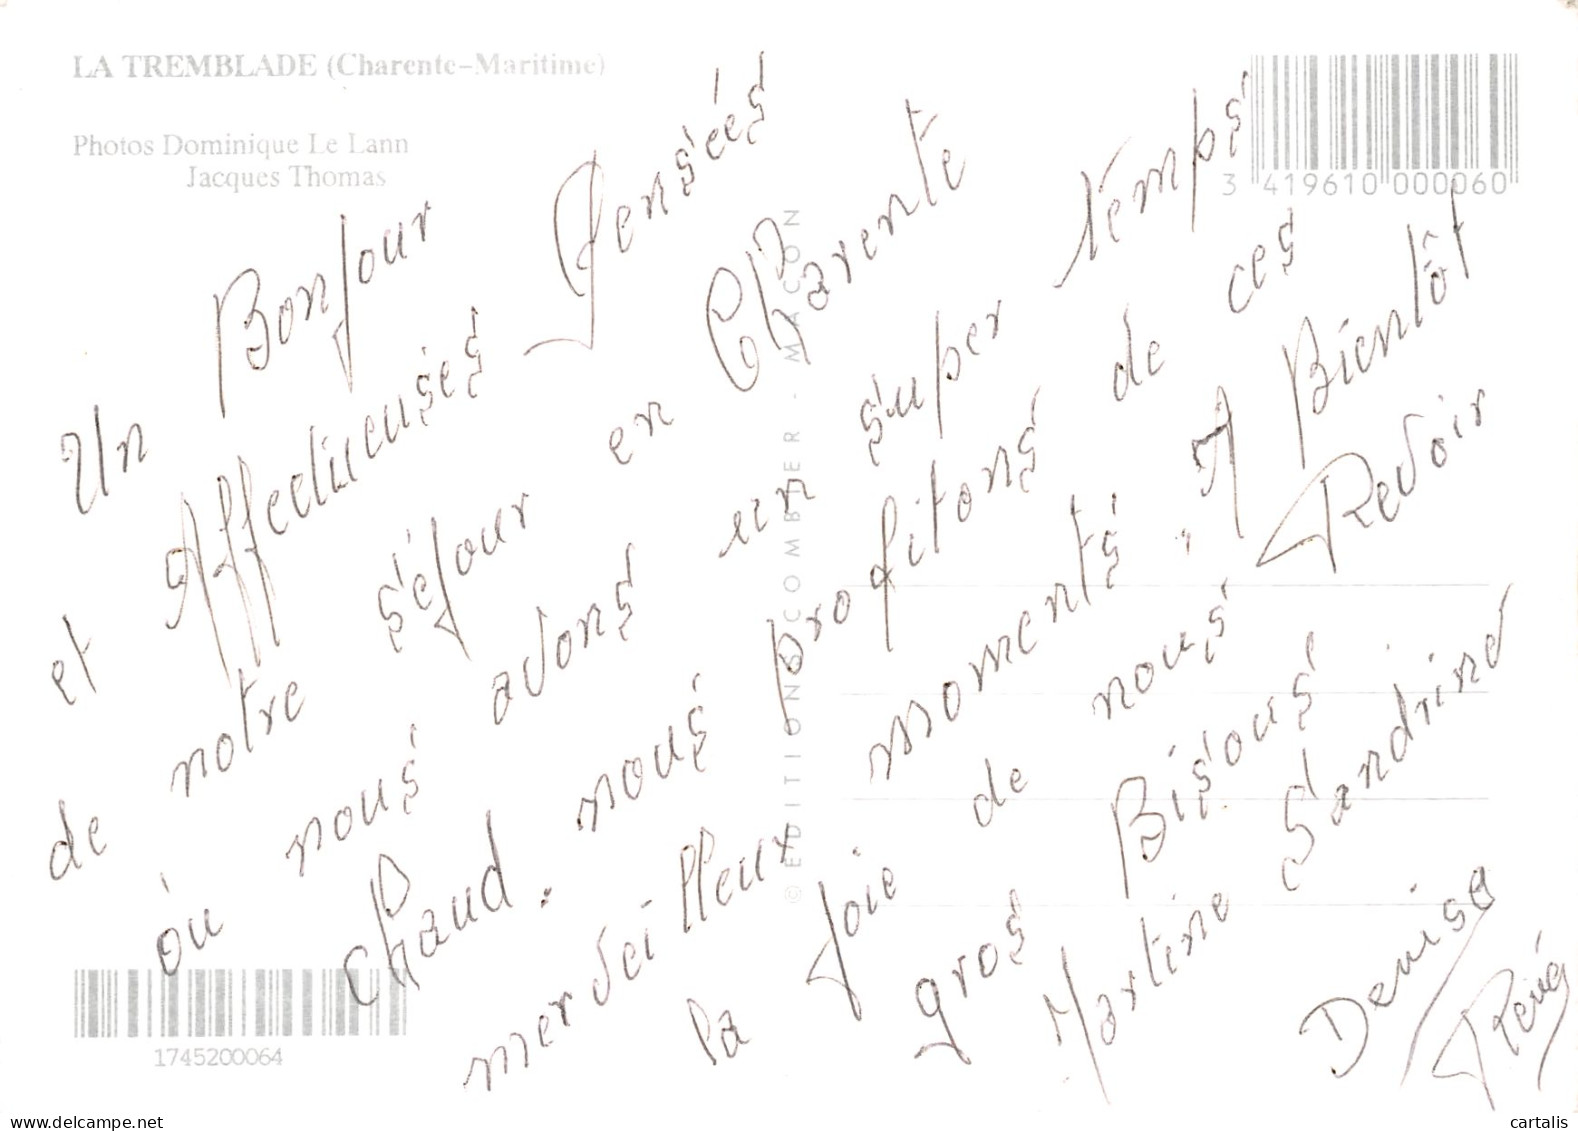 LA TREMBLADE (Charente-Maritime)
Photos Dominique Le Lann
Jacques Thomas
3 419610 000060
Un Bonjour
et Affectueuses Pensées
de notre séjour en Charente
où nous avons un super temps
chaud. nous profitons de ces
merveilleux moments. A Bientôt
la joie de nous Revoir
gros Bisous
Martine Sandrine
Denise
René
© EDITIONS COMBIER - MACON
1745200064
cartalis